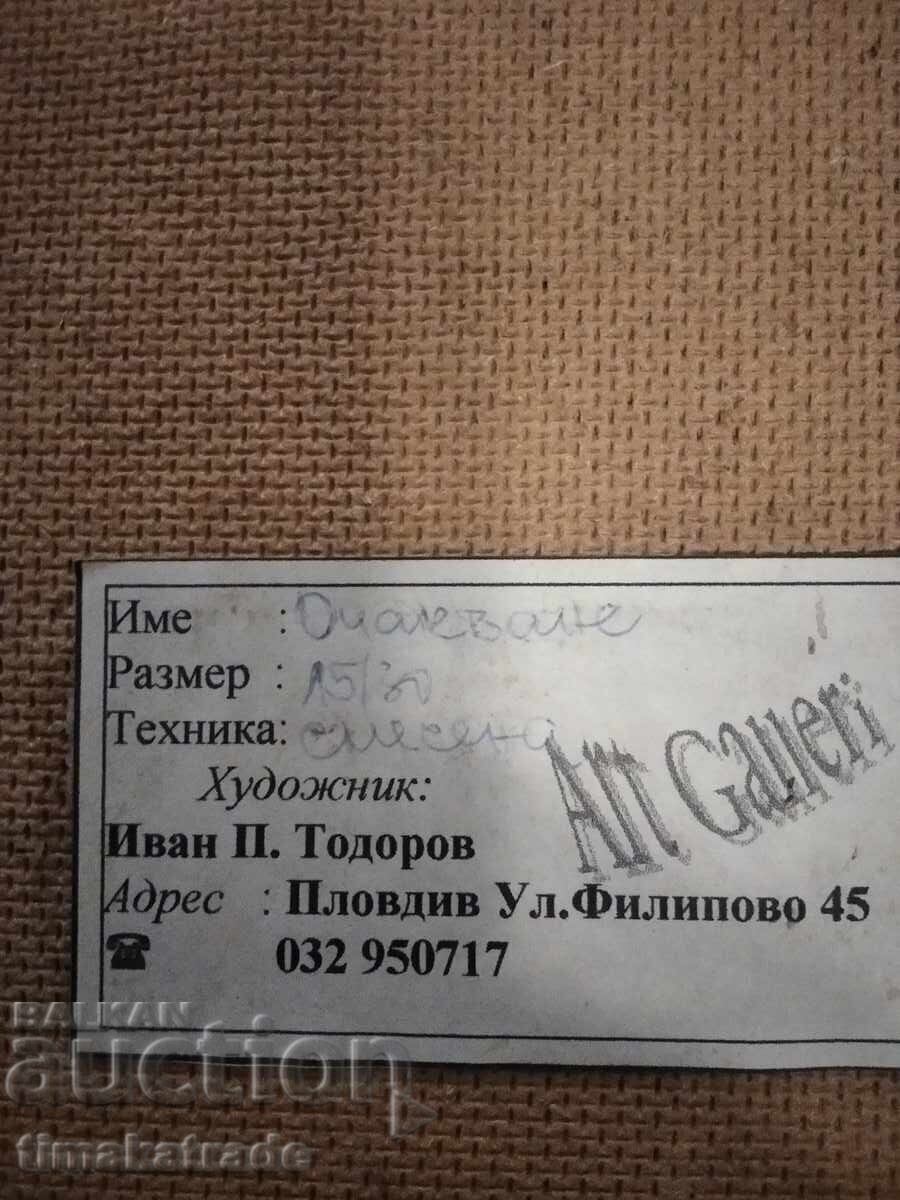 Име : Очакване
Размер : 15/30
Техника: смесена
Художник:
Иван П. Тодоров
Art Galleri
Адрес : Пловдив Ул.Филипово 45
☎ 032 950717
BALKAN
auction
timakatrade